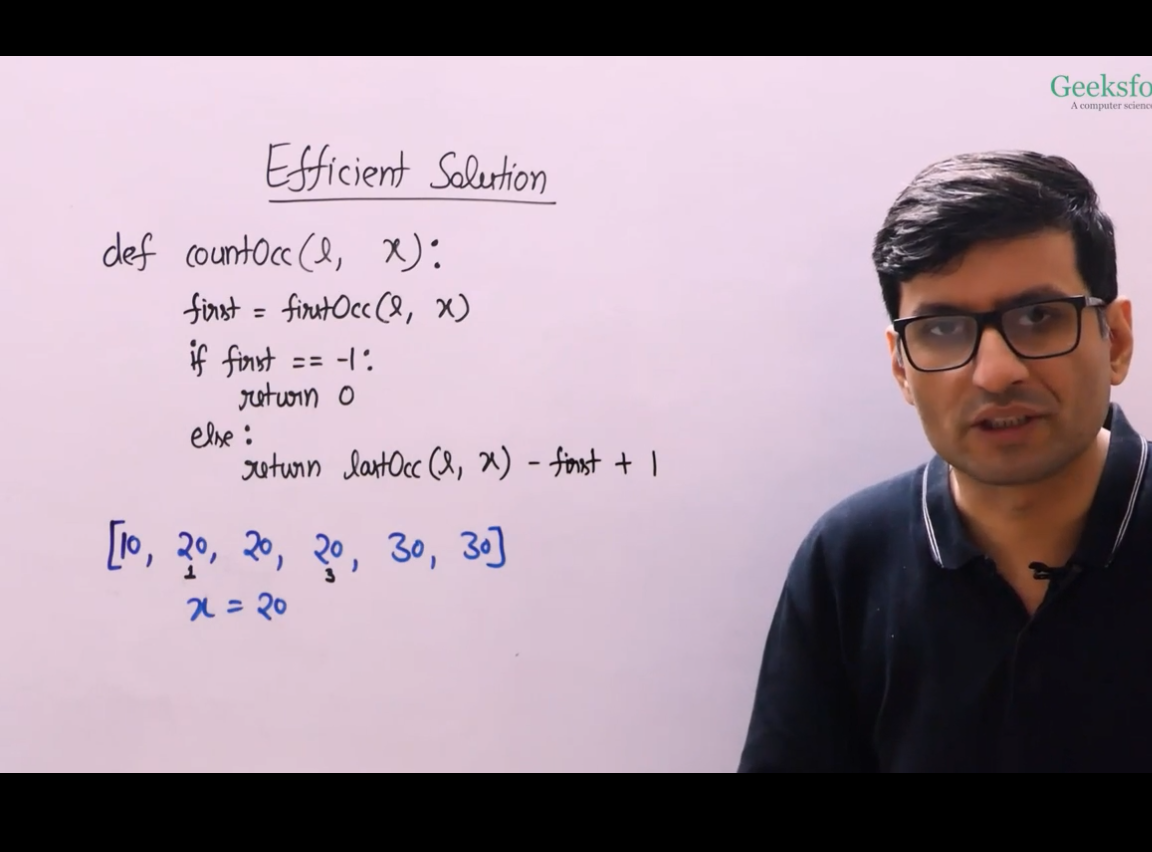 Geeksfo
A computer science
Efficient Solution
def countOcc(l, x):
first = firstOcc(l, x)
if first == -1:
return 0
else:
return lastOcc(l, x) - first + 1
[10, 20, 20, 20, 30, 30]
1 3
x = 20